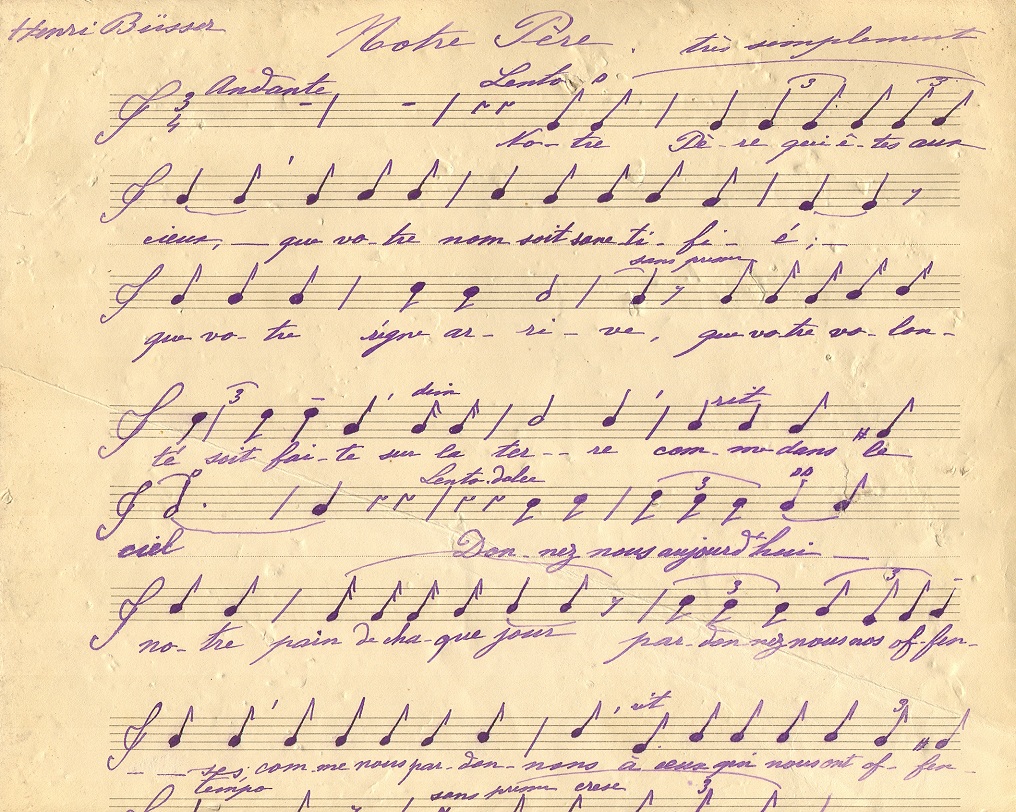 Henri Büsser
Notre Père. très simplement
Andante Lento
3 4 3 3
No-tre Pè-re qui ê-tes aux
cieux, — que vo-tre nom soit sanc-ti-fi-é;
sans presser
que vo-tre règne ar-ri-ve, que vo-tre vo-lon-
3 dim rit
té soit fai-te sur la ter--re com-me dans le
Lento dolce
3
ciel Don-nez nous aujourd'hui —
3 3
no-tre pain de cha-que jour par-don-nez nous nos of-fen-
rit 3
- - ses, com-me nous par-don-nons à ceux qui nous ont of-fen-
tempo sans presser cresc 3